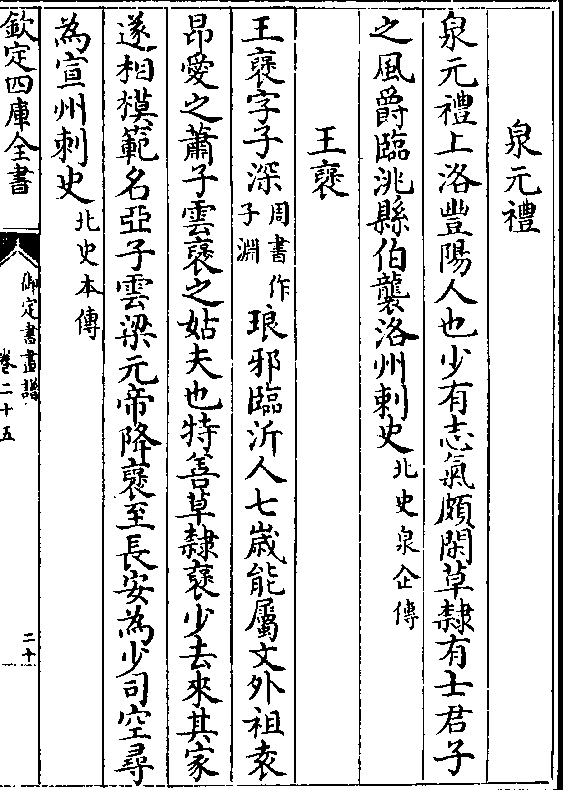 泉元禮
泉元禮上洛豐陽人也少有志氣頗閑草隸有士君子
之風爵臨洮縣伯襲洛州刺史北史泉企傳
王襃
王襃字子深周書作子淵琅邪臨沂人七歲能屬文外祖袁
昂愛之蕭子雲襃之姑夫也特善草隸襃少去來其家
遂相模範名亞子雲梁元帝降襃至長安為少司空尋
為宣州刺史北史本傳
欽定四庫全書
御定書畫譜
卷二十五
二十